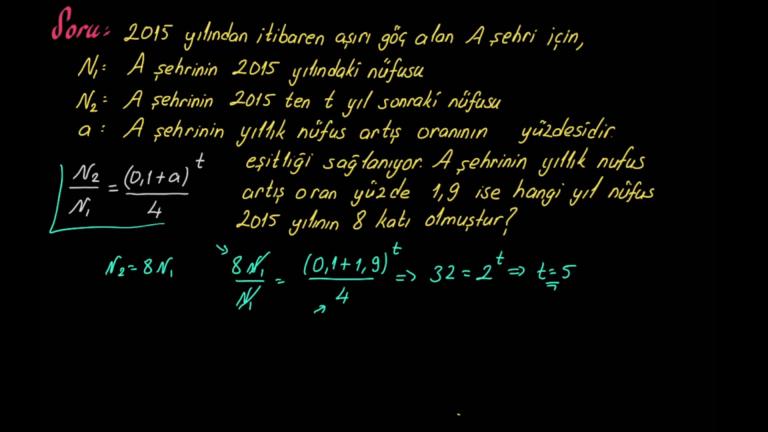 Soru: 2015 yılından itibaren aşırı göç alan A şehri için,
N₁: A şehrinin 2015 yılındaki nüfusu
N₂: A şehrinin 2015 ten t yıl sonraki nüfusu
a: A şehrinin yıllık nüfus artış oranının yüzdesidir.
N₂/N₁ = (0,1+a)^t/4 eşitliği sağlanıyor. A şehrinin yıllık nufus
artış oran yüzde 1,9 ise hangi yıl nüfus
2015 yılının 8 katı olmuştur?
N₂=8N₁ 8N₁/N₁ = (0,1+1,9)^t/4 => 32=2^t => t=5